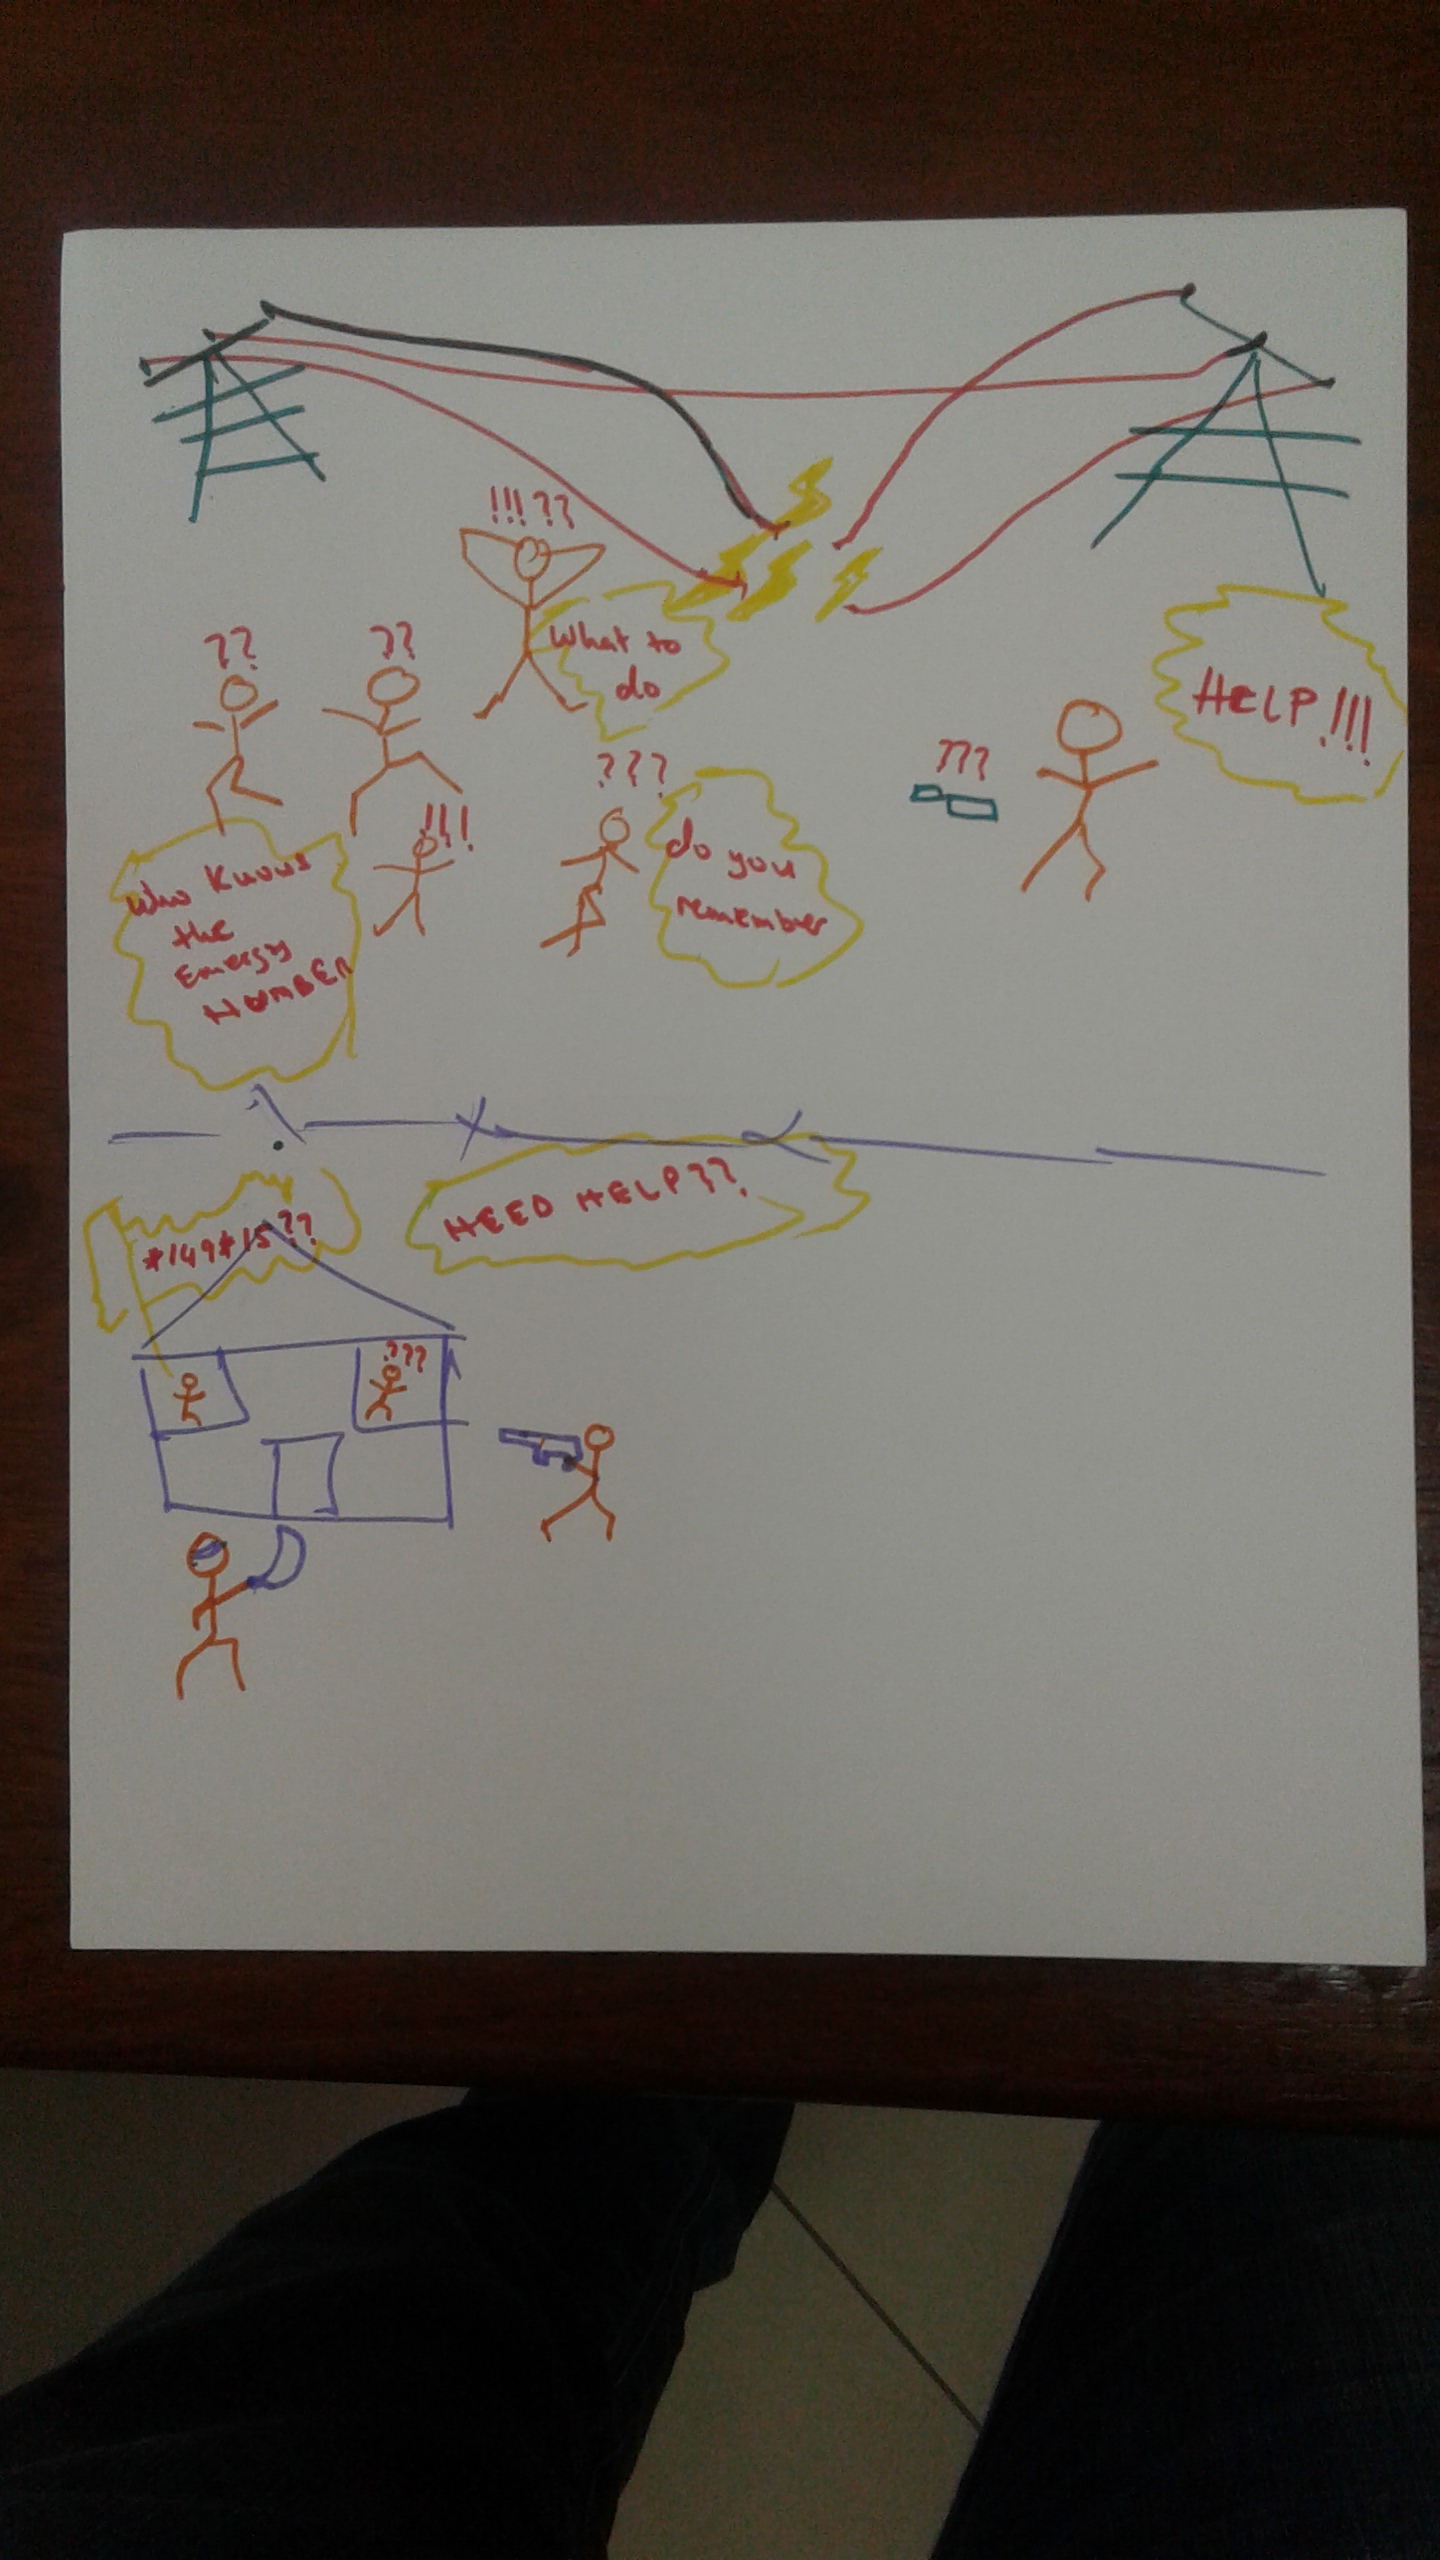 !!!??
What to
do
??
??
HELP!!!
???
???
!!!
do you
remember
Who Knows
the
Emergy
NUMBER
NEED HELP??
*149*15??
???